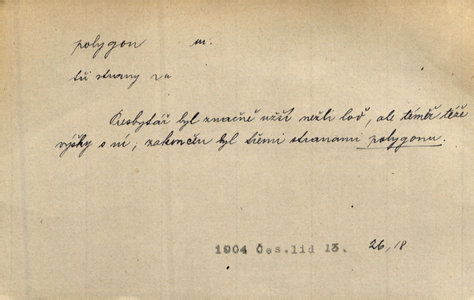 polygon m.
tři strany
Presbytář byl značně užší nežli loď, ale téměř téže
výšky s ní; zakončen byl třemi stranami polygonu.
1904 Čes.lid 13. 26,18